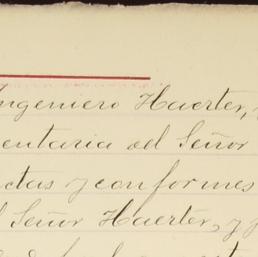 Ingeniero Haerter,
entaria del Señor
ctas y conformes
Señor Haerter, y